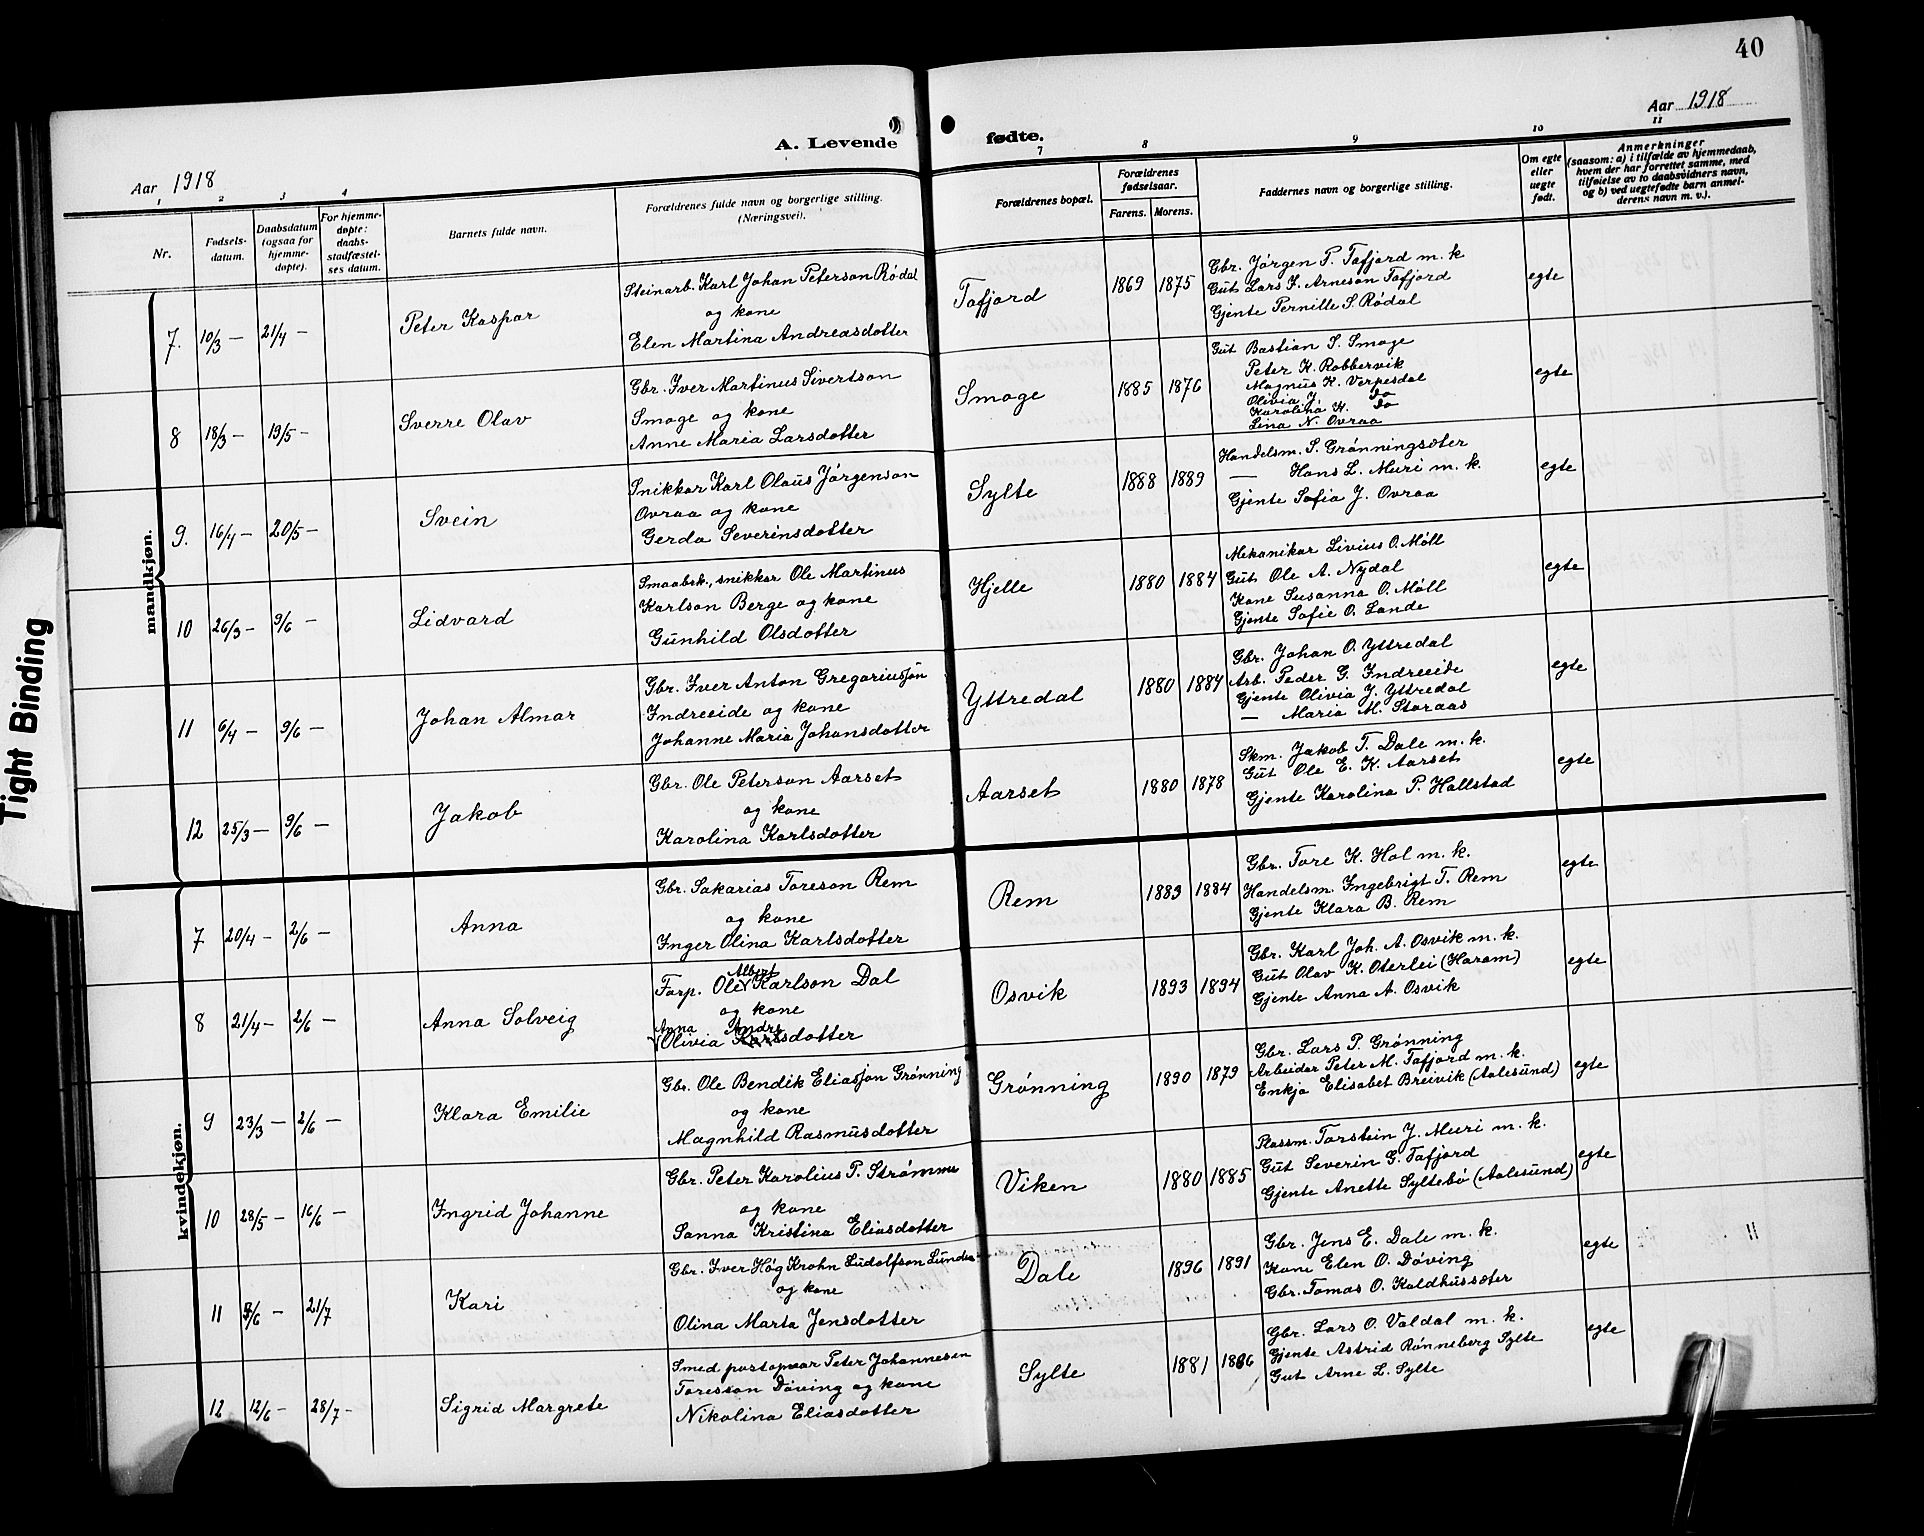 40
Aar 1918
A. Levende fødte.
Aar 1918
1 2 3 4 7 8 9 10 11
Nr.
Fødsels-
datum.
Daabsdatum
(ogsaa for
hjemme-
døpte).
For hjemme-
døpte:
daabs-
stadfæstel-
ses datum.
Barnets fulde navn.
Forældrenes fulde navn og borgerlige stilling.
(Næringsvei).
Forældrenes bopæl.
Forældrenes
fødselsaar.
Farens. Morens.
Faddernes navn og borgerlige stilling.
Om egte
eller
uegte
født.
Anmerkninger
(saasom: a) i tilfælde av hjemmedaab,
hvem der har forrettet samme, med
tilføielse av to daabsvidners navn,
og b) ved uegtefødte barn anmel-
derens navn m. v.).
mandkjøn.
7. 10/3 — 21/4 — Peter Kaspar
Steinarb. Karl Johan Peterson Rödal
og kone
Elen Martina Andreasdotter
Tafjord 1869 1875
Gbr. Jörgen P. Tafjord m. k
Gut Lars I. Arneson Tafjord
Gjente Pernille S. Rödal
egte
8 18/3 — 19/5 — Sverre Olav
Gbr. Iver Martinus Sivertson
Smoge og kone
Anne Maria Larsdotter
Smoge 1885 1876
Gut Bastian S. Smoge
Peter K. Robbervik
Magnus K. Verpesdal
Olivia J. do
Karolina K. do
Lina N. Ovraa
egte
9. 16/4 — 20/5 — Svein
Snikkar Karl Olaus Jörgenson
Ovraa og kone
Gerda Severinsdotter
Sylte 1888 1889
Handelsm. S. Grönningsæter
— Hans L. Muri m. k.
Gjente Sofia J. Ovraa
egte
10 26/3 — 9/6 — Lidvard
Smaabrk., snikkar Ole Martinus
Karlson Berge og kone
Gunhild Olsdotter
Hjelle 1880 1884
Mekanikar Livius O. Möll
Gut Ole A. Nydal
Kone Susanna O. Möll
Gjente Sofie O. Lande
egte
11 6/4 — 9/6 — Johan Almar
Gbr. Iver Anton Gregariussön
Indreeide og kone
Johanne Maria Johansdotter
Yttredal 1880 1884
Gbr. Johan O. Yttredal
Arb. Peder G. Indreeide
Gjente Olivia J. Yttredal
— Maria M. Storaas
egte
12 25/3 — 9/6 — Jakob
Gbr. Ole Peterson Aarset
og kone
Karolina Karlsdotter
Aarset 1880 1878
Skm. Jakob T. Dale m. k.
Gut Ole E. K. Aarset
Gjente Karolina P. Hallstad
egte
kvindekjøn.
7 20/4 — 2/6 — Anna
Gbr. Sakarias Toreson Rem
og kone
Inger Olina Karlsdotter
Rem 1883 1884
Gbr. Tore K. Hol m. k.
Handelsm. Ingebrigt T. Rem
Gjente Klara B. Rem
egte
8 21/4 — 2/6 — Anna Solveig
Albert
Farp. Ole Karlson Dal
og kone
Anna Andrs
Olivia Karlsdotter
Osvik 1893 1894
Gbr. Karl Joh. A. Osvik m. k.
Gut Olav K. Oterlei (Haram)
Gjente Anna A. Osvik
egte
9 23/3 — 2/6 — Klara Emilie
Gbr. Ole Bendik Eliasson Grönning
og kone
Magnhild Rasmusdotter
Grönning 1890 1879
Gbr. Lars P. Grönning
Arbeidar Peter M. Tafjord m. k.
Enkja Elisabet Breivik (Aalesund)
egte
10 28/5 — 16/6 — Ingrid Johanne
Gbr. Peter Karolius P. Strömme
og kone
Sanna Kristina Eliasdotter
Viken 1880 1885
Plassm. Torstein J. Muri m. k.
Gut Severin G. Tafjord
Gjente Anette Syltebö (Aalesund)
egte
11 /6 — 21/7 Kari
Gbr. Iver Hög Krohn Ludolfson Lunden
og kone
Olina Marta Jensdotter
Dale 1896 1891
Gbr. Jens E. Dale m. k.
Kone Elen O. Döving
Gbr. Tomas O. Koldhussæter
egte
12 12/6 — 28/7 — Sigrid Margrete
Smed, postopnar Peter Johannesen
Toresson Döving og kone
Nikolina Eliasdotter
Sylte 1881 1886
Gbr. Lars O. Valdal m. k.
Gjente Astrid Rönneberg Sylte
Gut Arne L. Sylte
egte
Tight Binding